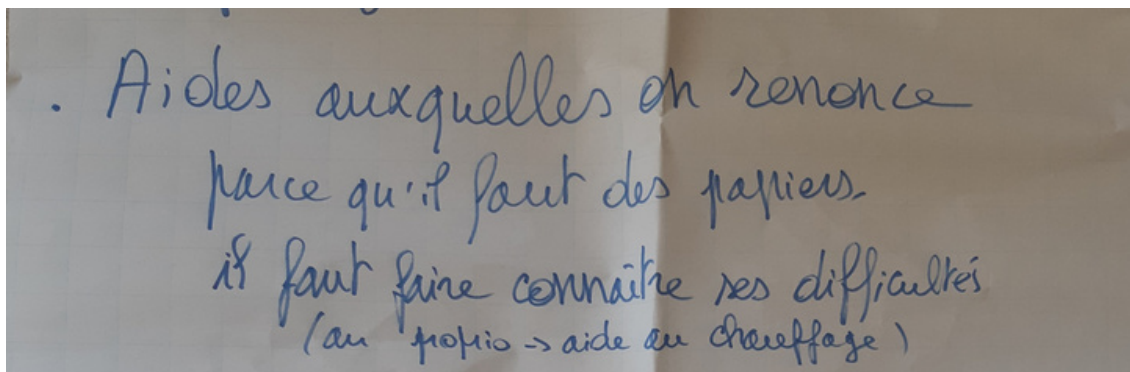 . Aides auxquelles on renonce
parce qu'il faut des papiers.
il faut faire connaître ses difficultés
(au proprio → aide au chauffage)